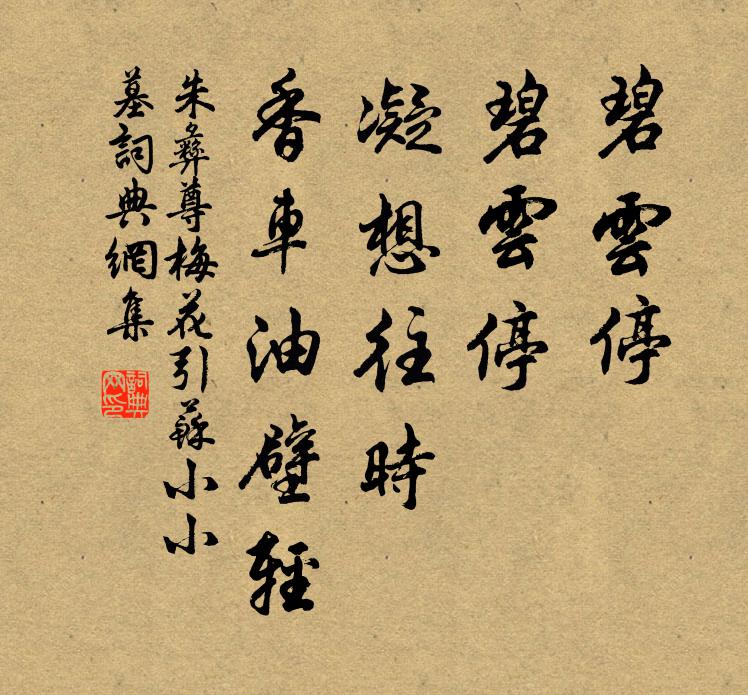 碧雲停
碧雲停
凝想往時
香車油壁輕
朱彝尊梅花引蘇小小
墓詞典網集
詞典
网印